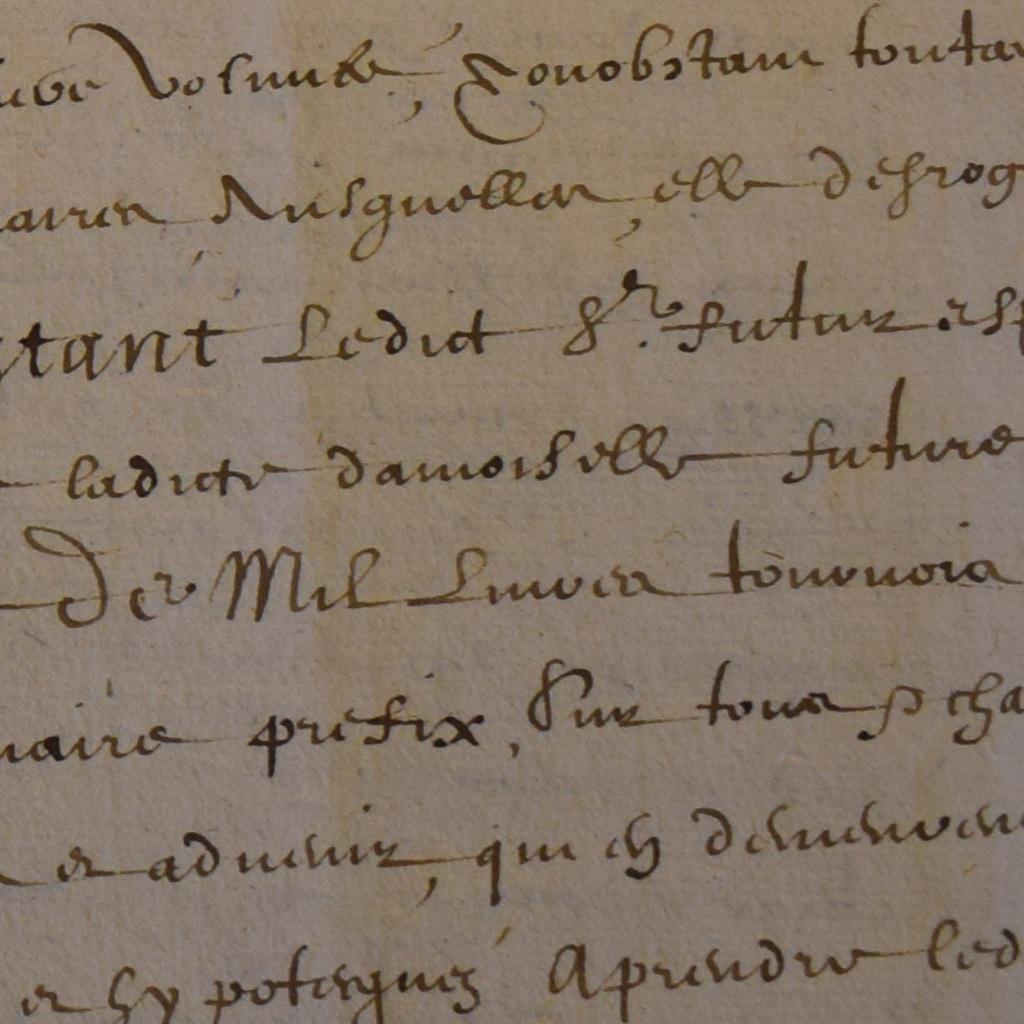 volunte, Nonobstant toutes
aires Ausquelles, elle desrog
tant Ledict Sr. futur esp
ladicte damoiselle future
De Mil Livres tournois
naire prefix, Sur tous & cha
et advenir, qui en demeuren
et hypotequez A prendre led